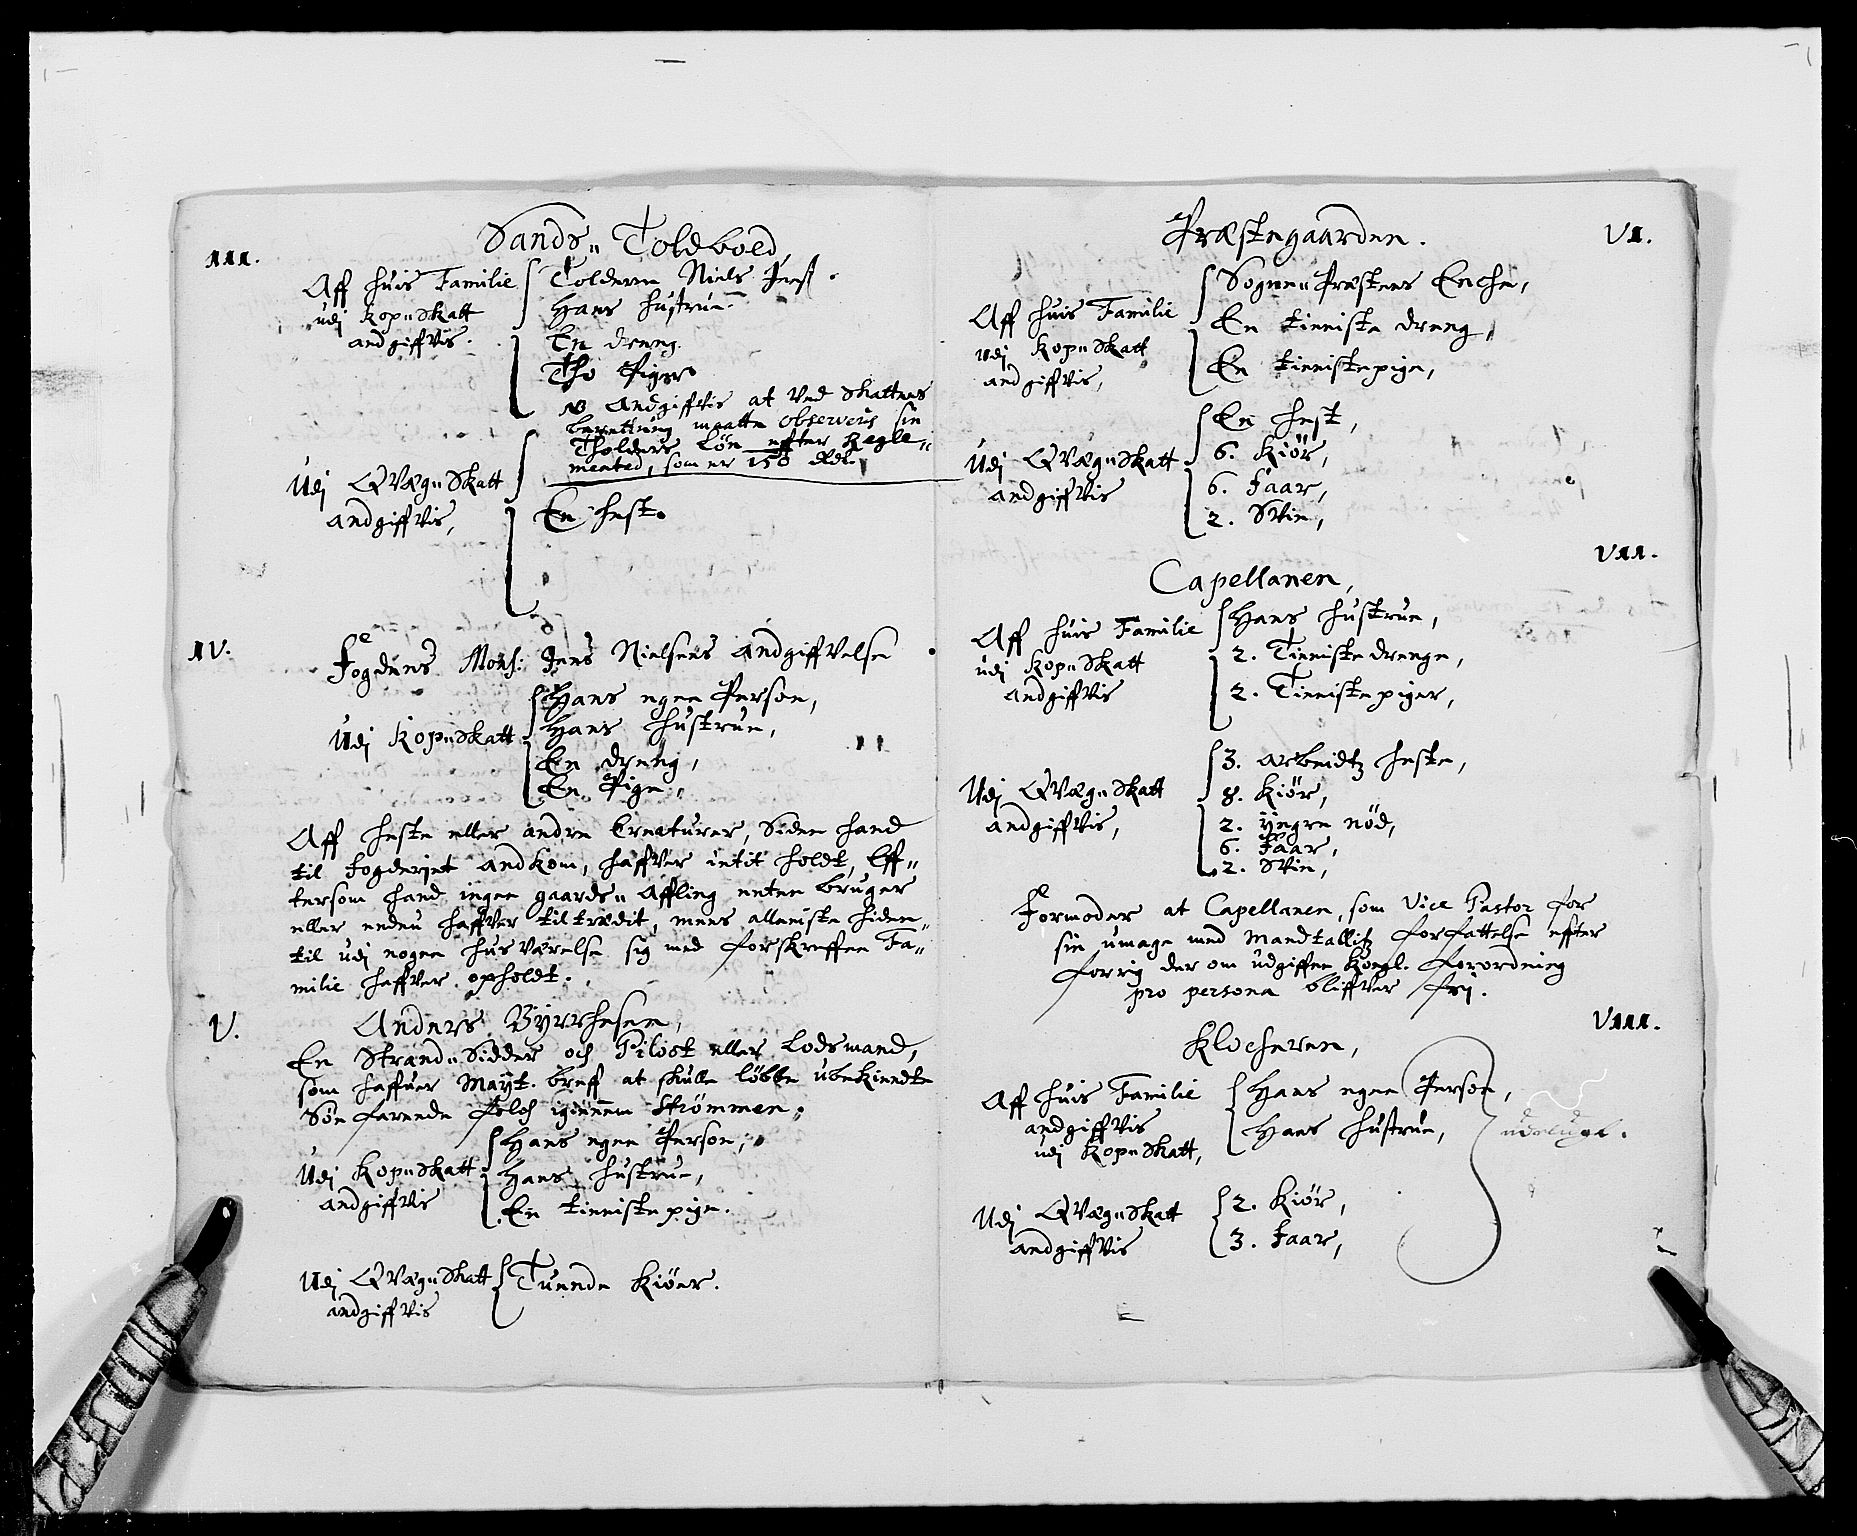 III.
Sands„ Toldboed,
Aff huis Familie
udj Kop„Skatt
andgiffvis.
Tolderen Niels Jens.
Hans hustrue.
En dreng.
Tho Piger.
NB Andgiffvis at ved Skattens
berettning maatte observeris sin
Tholders Løn effter Regle„
mented, som er 150 Rdr.
Udj QVæg„Skatt
andgiffvis,
En hest.
IV.
Fogdens Mons: Jens Nielsens andgiffvelse
Udj Kop„Skatt
Hans egen Person,
Hans hustrue,
En dreng,
En Pige,
Aff heste eller andre Creaturer, Siden hand
til fogderiet andkom, haffver intit holdt, Eff„
tersom hand ingen gaards„ Affling enten bruger
eller enden haffver tiltrædit, mens alleniste hiden„
til udj nogen hus værelse sig med forskreffen Fa„
milie haffver opholdt.
V.
Anders Byrrhesen,
En Strand„Sidder och Pilost eller Lodsmand,
som haffuer Mayt. breff at skulle løbbe ubekiendte
Søe farende folch igiennem Strømmen,
Udj Kop„Skatt
andgiffvis
Hans egen Person,
Hans hustrue,
En tieniste pige.
Udj QVæg„Skatt
andgiffvis
Tuende Kiøer.
Præstegaarden.
VI.
Aff huis Familie
Udj Kop„Skatt
andgiffvis,
Sogne„Præstens Enche,
En tieniste dreng,
En tienistepige,
Udj QVæg„Skatt
andgiffvis
En hest,
6. Kiör,
6. Faar,
2. Svin,
VII.
Capellanen,
Aff huis Familie
udj Kop„Skatt
andgiffvis
Hans hustrue,
2. Tieniste drenge,
2. Tienistepiger,
Udj QVæg„Skatt
andgiffvis,
3. arbeidtz heste,
8. Kiör,
2. yngre nöd,
6. Faar,
2. Svin,
Formoder at Capellanen, som Vice Pastor for
sin umage med Mandtallitz forfattelse effter
forrig der om udgiffen Kongl. forordning
pro persona bliffver frj.
VIII.
Klocheren,
Aff huis Familie
andgiffvis
udj Kop„Skatt,
Hans egen Person,
Hans hustrue,
Udj QVæg„Skatt
andgiffvis
2. Kiör,
3. Faar,